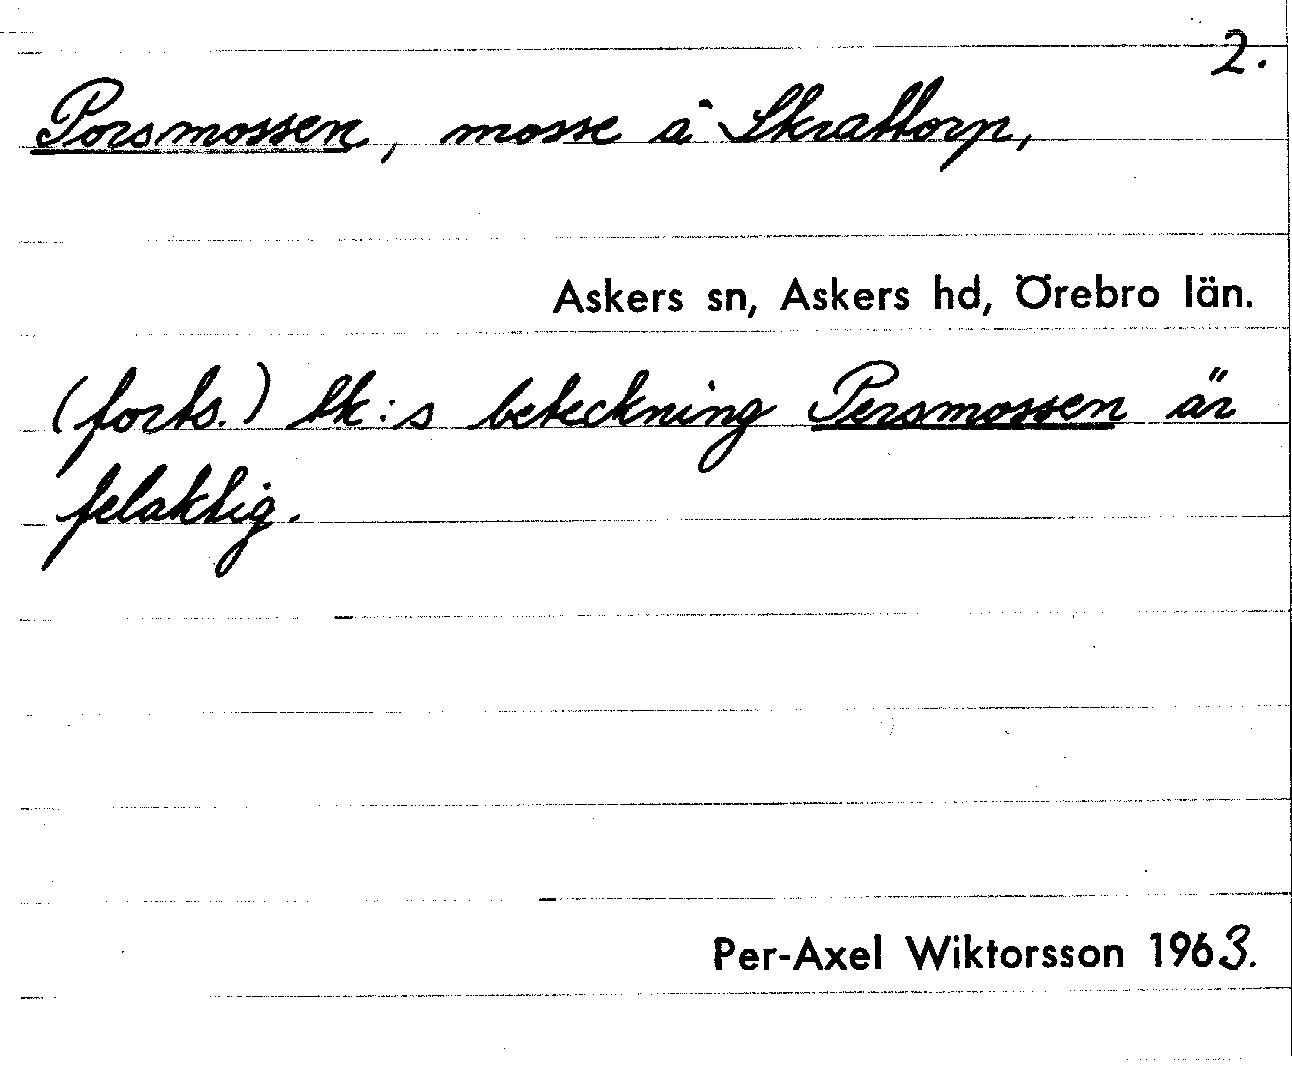 2.
Porsmossen, mosse å Skrattorp,
Askers sn, Askers hd, Örebro län.
(forts.) tk:s beteckning Persmossen är
felaktig.
Per-Axel Wiktorsson 1963.